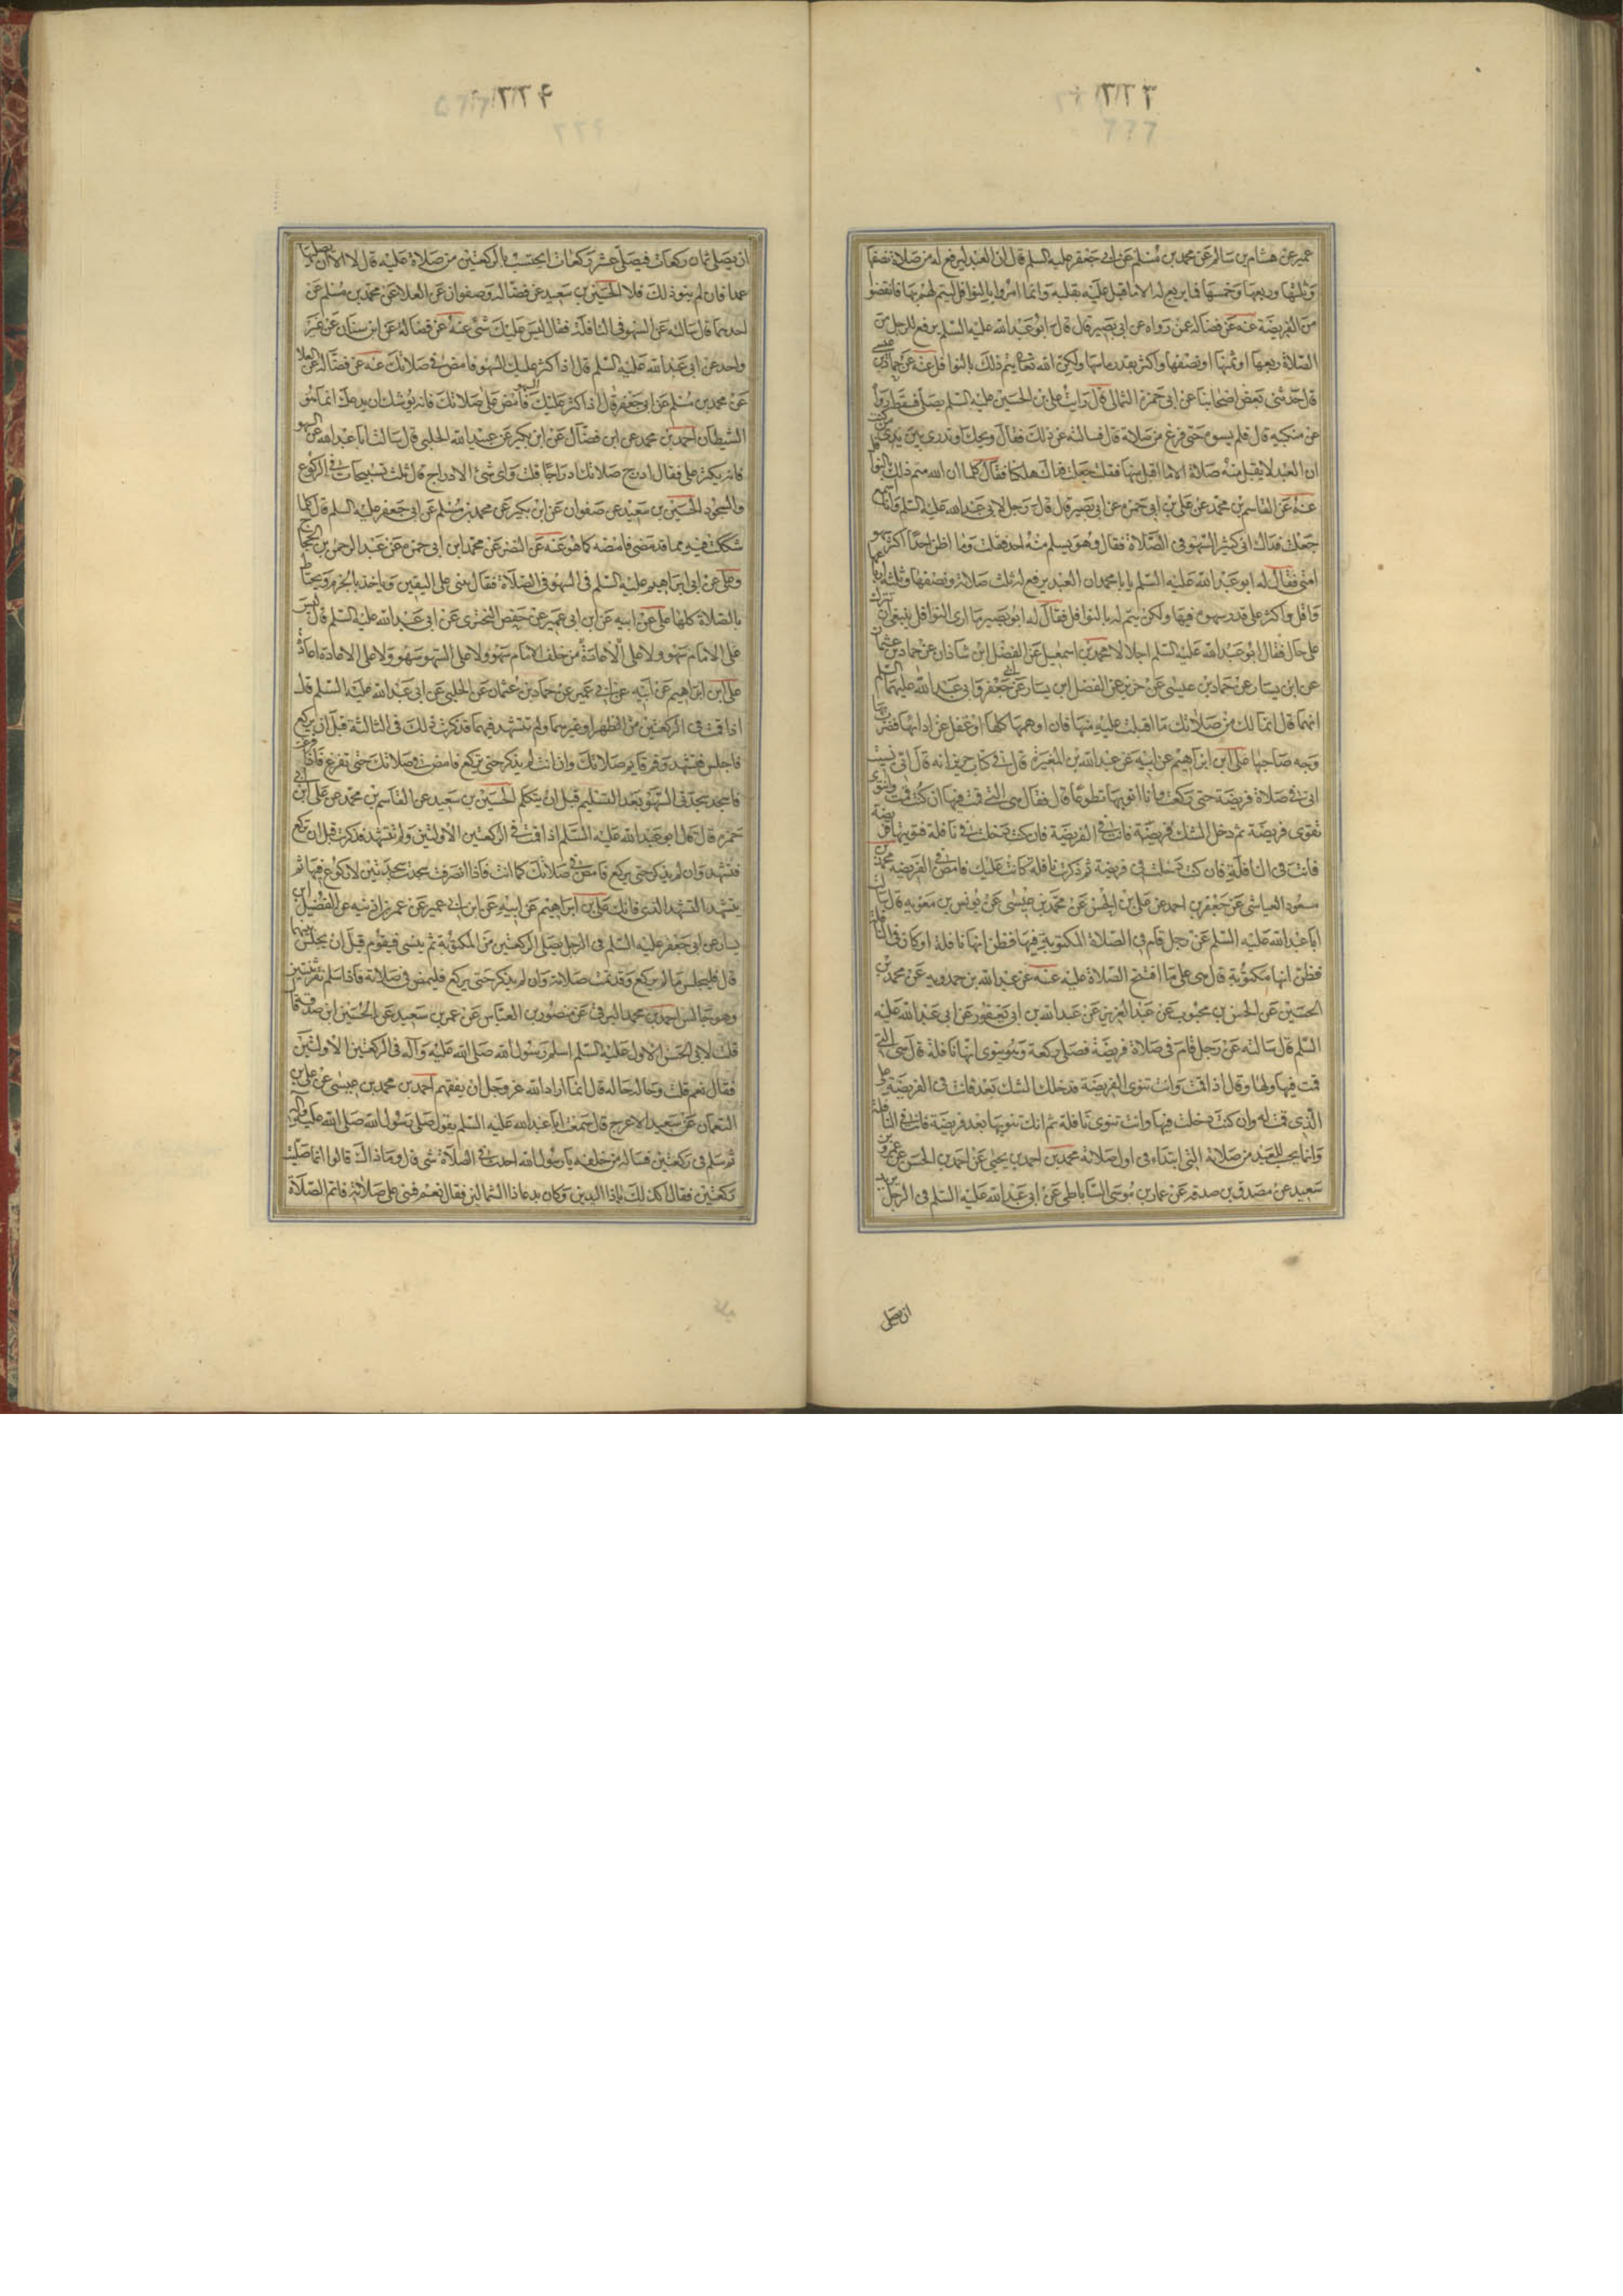 عمير عن هشام بن سالم عن محمد بن مسلم عن ابي جعفر عليه السلم قال ان العبد ليرفع له من صلاته نصفها
وثلثها وربعها وخمسها فما يرفع له الا ما اقبل عليه بقلبه وانما امروا بالنوافل ليتم لهم بها ما نقصوا
من الفريضة عنه عن فضالة عمن رواه عن ابي بصير قال قال ابو عبد الله عليه السلم يرفع للرجل من
الصلاة ربعها او ثمنها او نصفها واكثر بقدر ما سها ولكن الله تعالى يتم ذلك بالنوافل عنه عن حماد بن عيسى
قال حدثني بعض اصحابنا عن ابي حمزة الثمالي قال رايت علي بن الحسين عليه السلم يصلي فسقط رداؤه
عن منكبه قال فلم يسوه حتى فرغ من صلاته قال فسالته عن ذلك فقال ويحك اتدري بين يدي من كنت
ان العبد لا يقبل منه صلاة الا ما اقبل منها فقلت جعلت فداك هلكنا فقال كلا ان الله متم ذلك بالنوافل
عنه عن القاسم بن محمد عن علي بن ابي حمزة عن ابي بصير قال قال رجل لابي عبد الله عليه السلم وانا اسمع
جعلت فداك اني كثير السهو في الصلاة فقال وهو يسلم منه احد فقلت وما اظن احدا اكثر سهوا
مني فقال له ابو عبد الله عليه السلم يا با محمد ان العبد يرفع له ثلث صلاته ونصفها وثلثة ارباعها
واقل واكثر على قدر سهوه فيها ولكن يتم له بالنوافل فقال له ابو بصير ما ارى النوافل ينبغي ان تترك
على حال فقال ابو عبد الله عليه السلم اجل لا محمد بن اسمعيل عن الفضل ابن شاذان عن حماد بن عثمان
عن ابن يسار عن حماد بن عيسى عن حريز عن الفضل ابن يسار عن ابي جعفر وابي عبد الله عليهما السلم
انهما قال انما لك من صلاتك ما اقبلت عليه منها فان اوهمها كلها او غفل عن ادائها
وجه صاحبها علي ابن ابراهيم عن ابيه عن عبد الله بن المغيرة قال في كتاب حريز انه قال اني نسيت
اني في صلاة فريضة حتى ركعت وانا انويها تطوعا قال فقال هي التي قمت فيها ان كنت قمت وانت
تنوي فريضة ثم دخل الشك فريضة فانت في الفريضة فان كنت دخلت في نافلة فنويتها فريضة
فانت في النافلة فان كنت دخلت في فريضة ثم ذكرت نافلة كانت عليك فامض في الفريضة محمد بن
مسعود العياشي عن جعفر بن احمد عن علي بن الحسن عن محمد بن عيسى عن يونس بن معوية قال سالت
ابا عبد الله عليه السلم عن رجل قام في الصلاة المكتوبة فيها فظن انها نافلة او كان في النافلة
فظن انها مكتوبة قال هي على ما افتتح الصلاة عليه عنه عن عبد الله بن حمدويه عن محمد بن
الحسين عن الحسن بن محبوب عن عبد العزيز عن عبد الله بن ابي يعفور عن ابي عبد الله عليه
السلم قال سالته عن رجل قام في صلاة فريضة فصلى ركعة وهو ينوي انها نافلة قال هي التي
قمت فيها ولها وقال اذا قمت وانت تنوي الفريضة فدخلك الشك بعد فانت في الفريضة على
الذي قمت له وان كنت دخلت فيها وانت تنوي نافلة ثم انك تنويها بعد فريضة فانت في النافلة
وانما يحسب للعبد من صلاته التي ابتداء في اول صلاته محمد بن احمد بن يحيى عن احمد بن الحسن عن عمرو بن
سعيد عن مصدق بن صدقة عن عمار بن موسى الساباطي عن ابي عبد الله عليه السلم في الرجل
ان يصلي
ان يصلي ثمان ركعات فيصلي عشر ركعات ايحتسب بالركعتين من صلاة عليه قال لا الا ان يصليها
عمدا فان لم ينو ذلك فلا الحسين بن سعيد عن فضالة وصفوان عن العلا عن محمد بن مسلم عن
احدهما قال سالته عن السهو في النافلة فقال ليس عليك شي عنه عن فضالة عن ابن سنان عن غير
واحد عن ابي عبد الله عليه السلم قال اذا كثر عليك السهو فامض في صلاتك عنه عن فضالة عن العلا
عن محمد بن مسلم عن ابي جعفر قال اذا كثر عليك السهو فامض على صلاتك فانه يوشك ان يدعك انما هو
الشيطان احمد بن محمد عن ابن فضال عن ابن بكير عن عبيد الله الحلبي قال سالت ابا عبد الله عن السهو
فانه يكثر علي فقال ادرج صلاتك ادراجا قلت واي شي الادراج قال ثلث تسبيحات في الركوع
والسجود الحسين بن سعيد عن صفوان عن ابن بكير عن محمد بن مسلم عن ابي جعفر عليه السلم قال كلما
شككت فيه مما قد مضى فامضه كما هو عنه عن النضر عن محمد ابن ابي حمزة عن عبد الرحمن بن الحجاج
وعلي عن ابي ابراهيم عليه السلم في السهو في الصلاة فقال يبنى على اليقين وياخذ بالجزم ويحتاط
بالصلاة كلها علي عن ابيه عن ابن ابي عمير عن حفص البختري عن ابي عبد الله عليه السلم قال ليس
على الامام سهو ولا على من خلف الامام سهو ولا على السهو سهو ولا على الاعادة اعادة
علي ابن ابراهيم عن ابيه عن ابي عمير عن حماد بن عثمان عن الحلبي عن ابي عبد الله عليه السلم قال
اذا قمت في الركعتين من الظهر او غيرها ولم تتشهد فيهما فذكرت ذلك في الثالثة قبل ان يركع
فاجلس فتشهد وقم فاتم صلاتك وان انت لم يذكر حتى يركع فامض في صلاتك حتى تفرغ فاذا فرغت
فاسجد سجدتي السهو بعد التسليم قبل ان يتكلم الحسين بن سعيد عن القاسم بن محمد عن علي ابن ابي
حمزه قال قال ابو عبد الله عليه السلم اذا قمت في الركعتين الاولتين ولم تتشهد فذكرت قبل ان تركع
فتشهد وان لم يذكر حتى يركع فامض في صلاتك كما انت فاذا انصرفت سجدت سجدتين لا ركوع فيها ثم
يتشهد التشهد الذي فاتك علي بن ابراهيم عن ابيه عن ابن ابي عمير عن عمر بن اذينه عن الفضيل ابن
يسار عن ابي جعفر عليه السلم في الرجل يصلي الركعتين من المكتوبة ثم ينسى فيقوم قبل ان يجلس بينهما
قال فليجلس ما لم يركع وقد تمت صلاته وان لم يذكر حتى يركع فليمض في صلاته فاذا سلم نقر ثنتين
وهو جالس احمد بن محمد البرقي عن منصور بن العباس عن عمرو بن سعيد عن الحسين ابن صدقة قال
قلت لابي الحسن الاول عليه السلم اسلم رسول الله صلى الله عليه وآله في الركعتين الاولتين
فقال نعم قلت وحاله حاله قال انما اراد الله عز وجل ان يفقههم احمد بن محمد بن عيسى عن علي بن
النعمان عن سعيد الاعرج قال سمعت ابا عبد الله عليه السلم يقول صلى رسول الله صلى الله عليه وآله
ثم سلم في ركعتين فساله من خلفه يا رسول الله احدث في الصلاة شي قال وما ذاك قالوا انما صليت
ركعتين فقال اكذلك يا ذا اليدين وكان يدعا ذا الشمالين فقال نعم فبنى على صلاته فاتم الصلاة